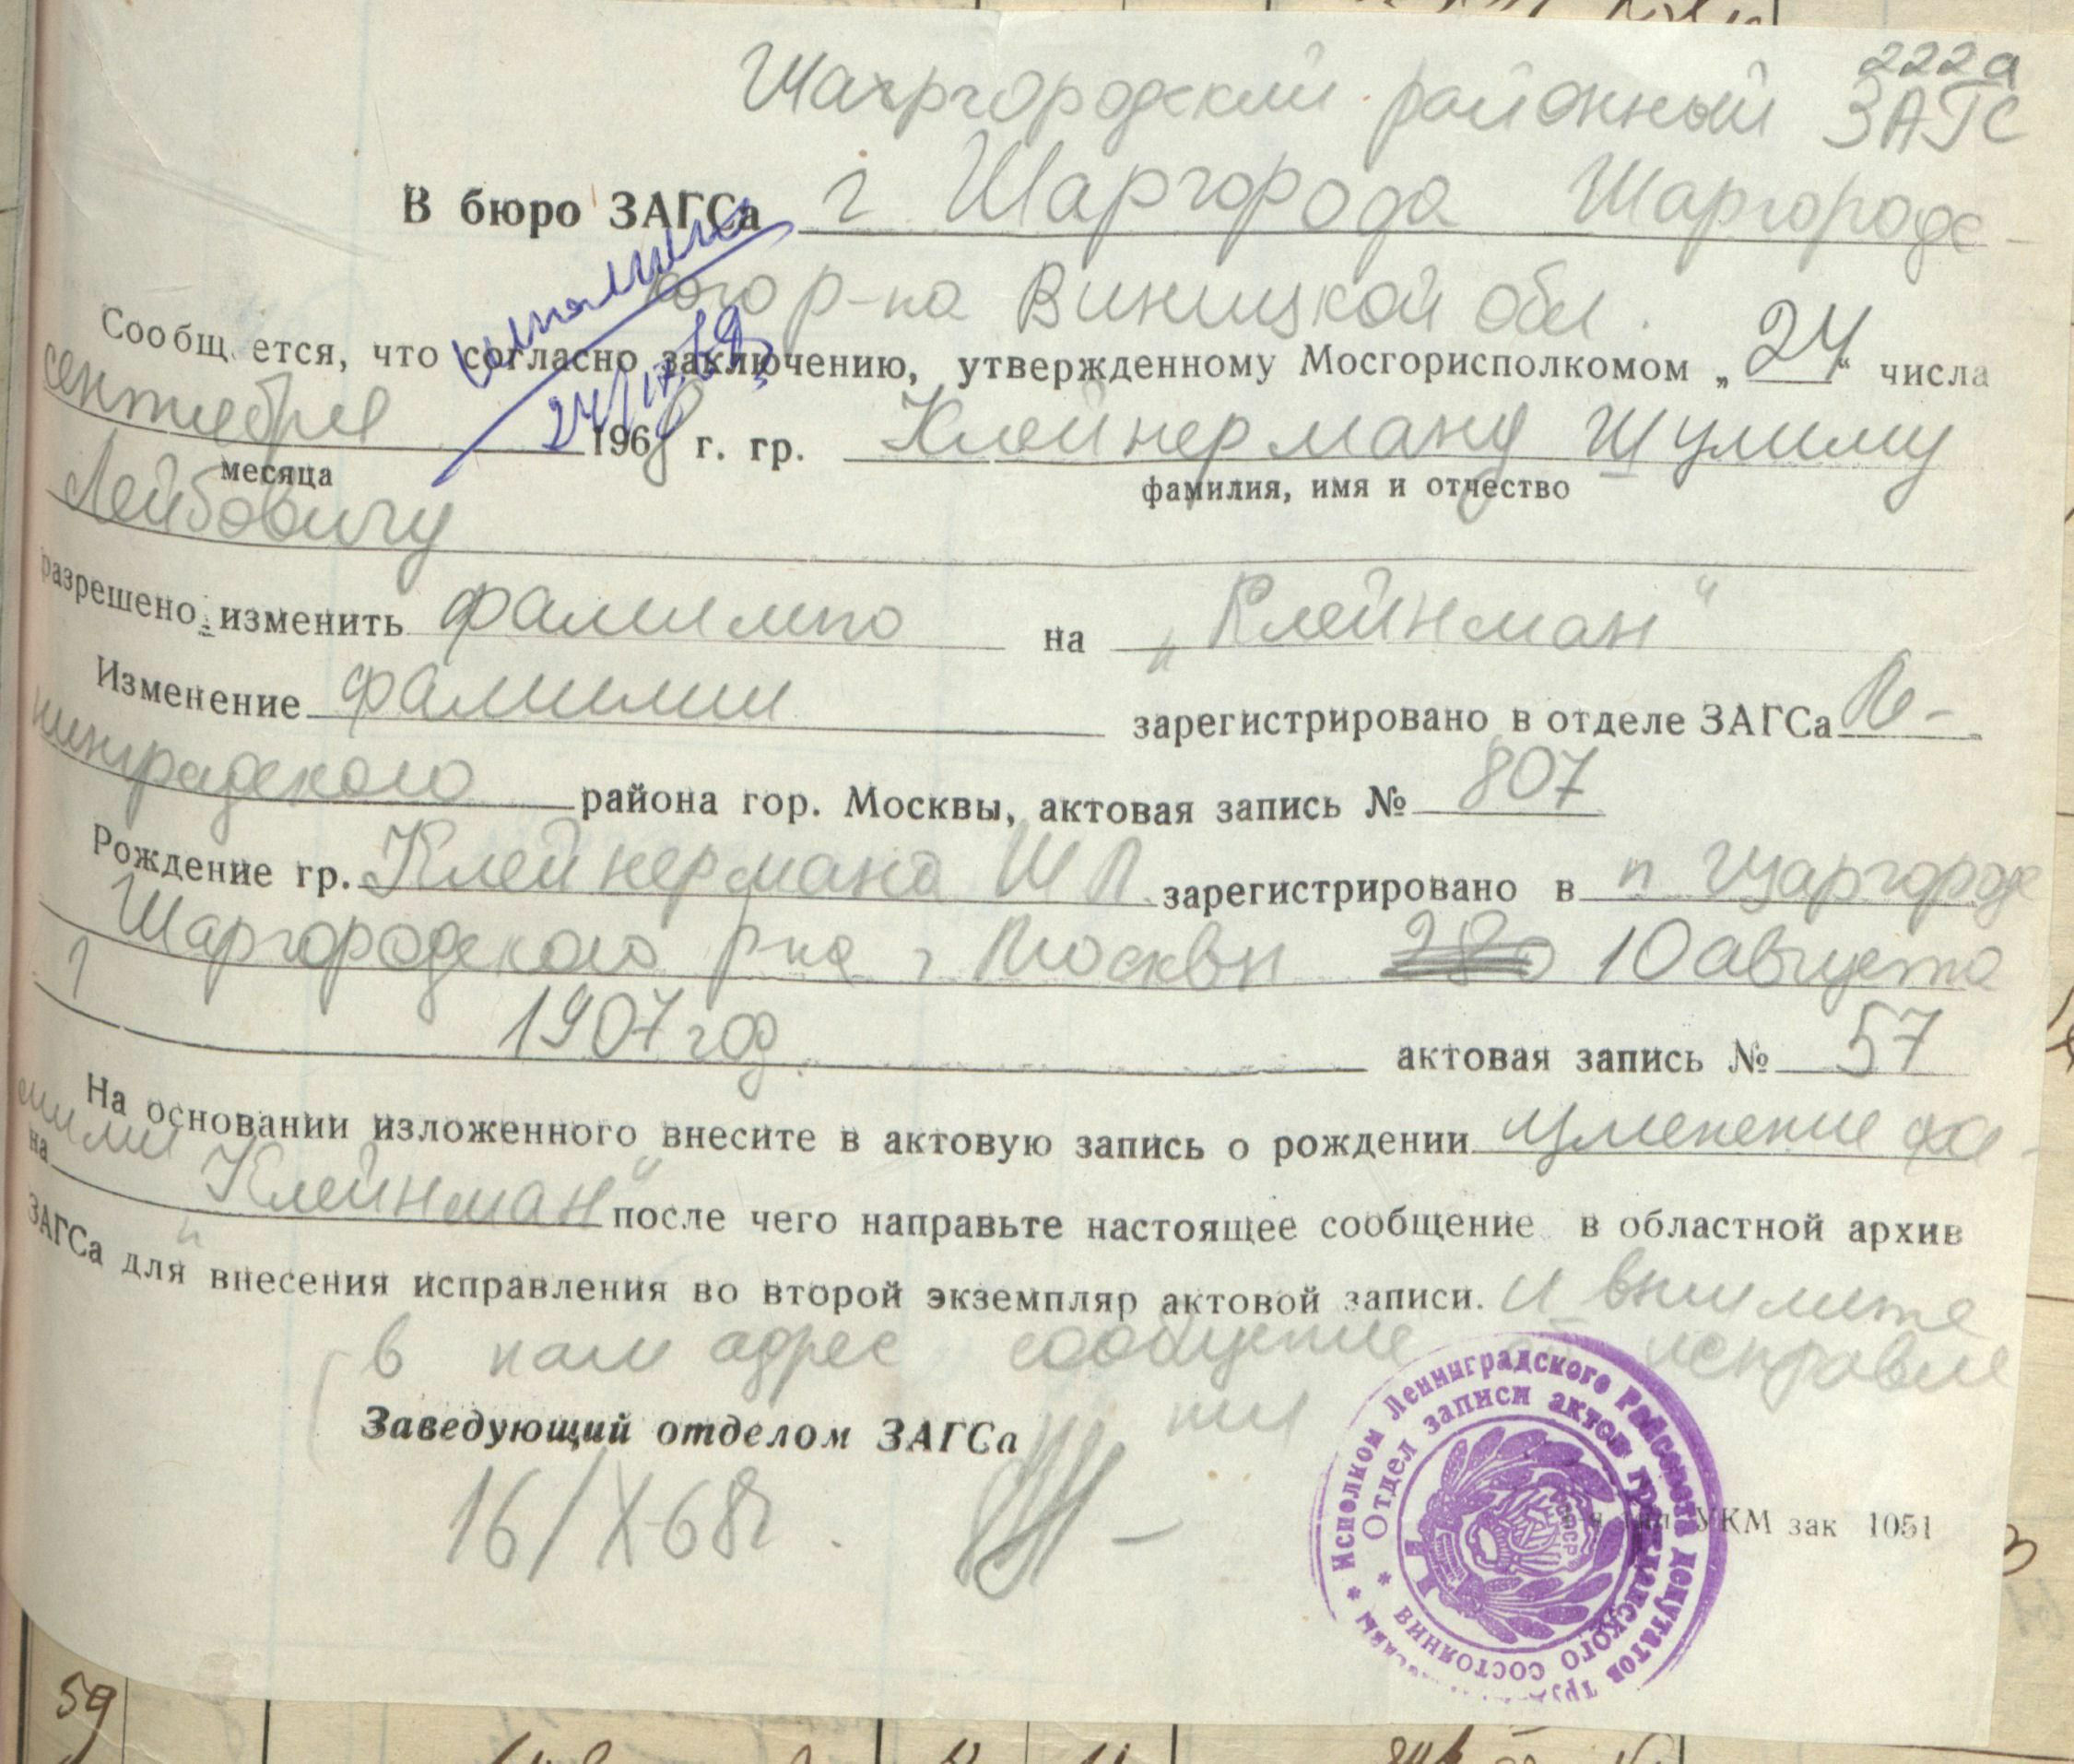 222а
Шаргородский районный ЗАГС
В бюро ЗАГСа г Шаргорода Шаргородс-
кого р-на Виницкой обл.
Сообщается, что согласно заключению, утвержденному Мосгорисполкомом „24“ числа
сентября 1968 г. гр. Клейнерману Шулиму
месяца фамилия, имя и отчество
Лейбовичу
разрешено изменить фамилию на „Клейнман“
Изменение фамилии зарегистрировано в отделе ЗАГСа Ле-
нинградского района гор. Москвы, актовая запись № 807
Рождение гр. Клейнермана Ш Л зарегистрировано в п Шаргороде
Шаргородского р-на г Москвы 10 августа
1907 год актовая запись № 57
На основании изложенного внесите в актовую запись о рождении изменение фа-
милии
на „Клейнман“ после чего направьте настоящее сообщение в областной архив
ЗАГСа для внесения исправления во второй экземпляр актовой записи. и вышлите
в наш адрес сообщение об исправле
нии
Заведующий отделом ЗАГСа
16/X-68г.
УКМ зак 1051
Исполком Ленинградского Райсовета депутатов
Отдел записи актов гражданского состояния
59